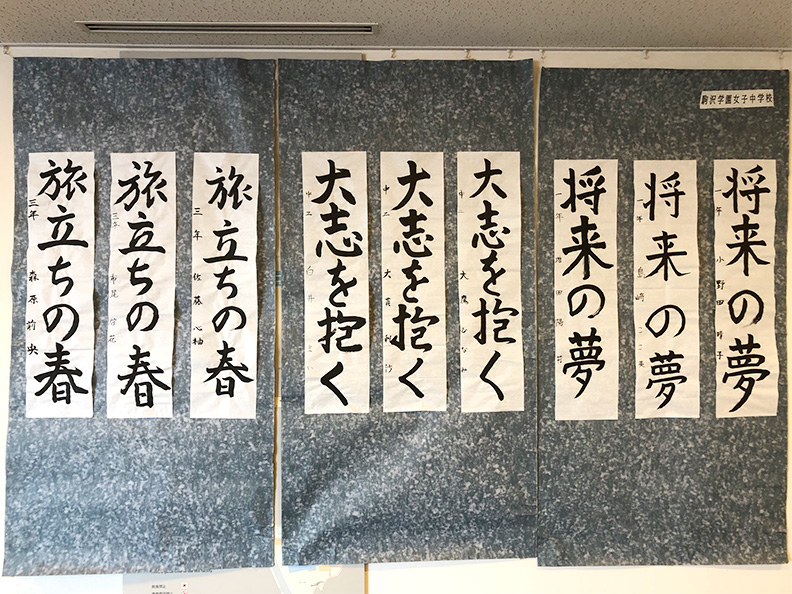 駒沢学園女子中学校
将来の夢
一年 小野田
将来の夢
一年 島崎
将来の夢
一年
大志を抱く
中二
大志を抱く
中二
大志を抱く
中二 白井
旅立ちの春
三年 佐藤心柚
旅立ちの春
三年
旅立ちの春
三年 森原莉央